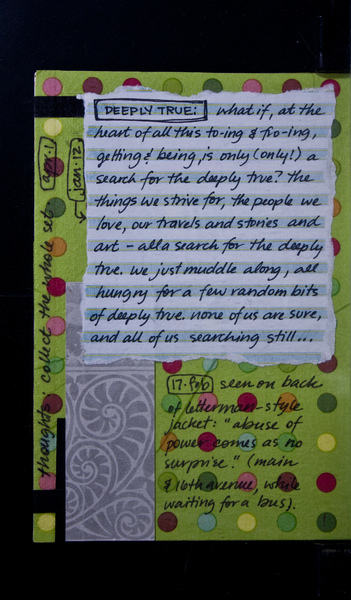 DEEPLY TRUE: what if, at the
heart of all this to-ing & fro-ing,
getting & being, is only (only!) a
search for the deeply true? the
things we strive for, the people we
love, our travels and stories and
art - all a search for the deeply
true. we just muddle along, all
hungry for a few random bits
of deeply true. none of us are sure,
and all of us searching still...
jan. 12
apr. 1
thoughts collect the whole set.
17. feb seen on back
of letterman-style
jacket: "abuse of
power comes as no
surprise." (main
& 16th avenue, while
waiting for a bus).